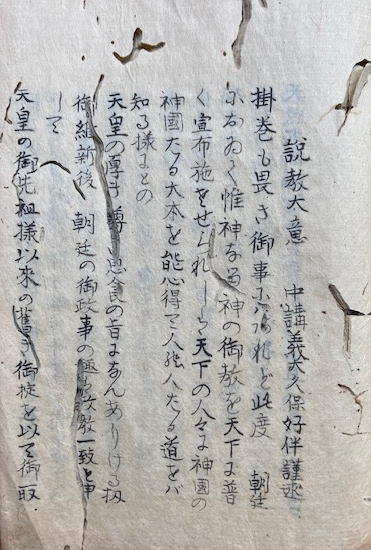 説教大意　中講義大久保好伴謹述
掛巻も畏き御事にハあれど此度　朝廷
におゐて惟神なる神の御教を天下に普
く宣布施をせられしハ天下の人々に神国の
神國たる大本を能心得て人能人たる道をバ
知る様にとの
天皇の厚き思食の旨になんありける扨
御維新後　朝廷の御政事の極意教一致と申
して
天皇の御先祖様以来の旧き御掟を以て御取